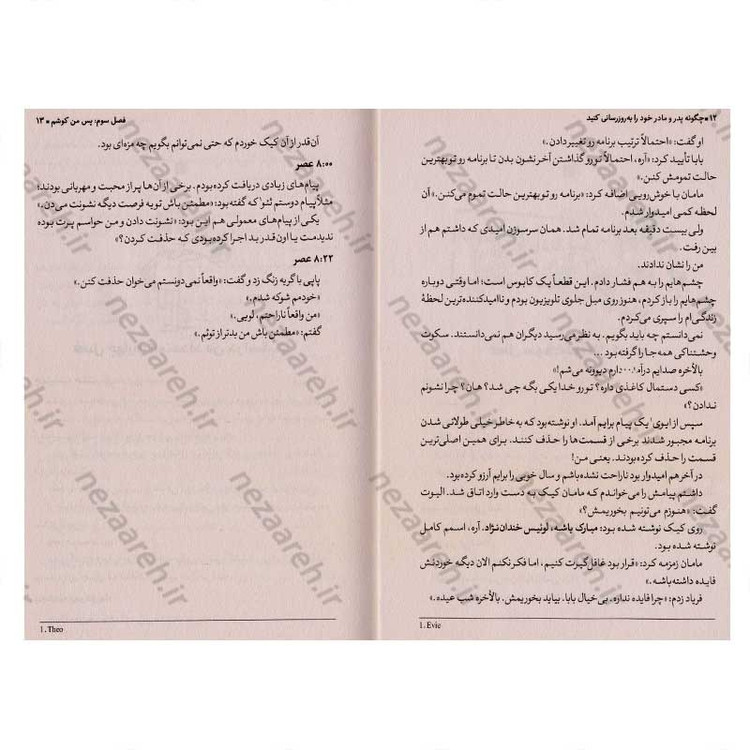 ۱۲ ● چگونه پدر و مادر خود را به‌روزرسانی کنید
او گفت: «احتمالاً ترتیب برنامه رو تغییر دادن.»
بابا تأیید کرد: «آره، احتمالاً تو رو گذاشتن آخر نشون بدن تا برنامه رو بهترین
حالت تمومش کنن.»
مامان با خوش‌رویی اضافه کرد: «برنامه رو تو بهترین حالت تموم می‌کنن.» آن
لحظه کمی امیدوار شدم.
ولی بیست دقیقه بعد برنامه تمام شد. همان سرسوزن امیدی که داشتم هم از
بین رفت.
من را نشان ندادند.
چشم‌هایم را به هم فشار دادم. این قطعاً یک کابوس است؛ اما وقتی دوباره
چشم‌هایم را باز کردم، هنوز روی مبل جلوی تلویزیون بودم و ناامیدکننده‌ترین لحظهٔ
زندگی‌ام را سپری می‌کردم.
نمی‌دانستم چه باید بگویم. به نظر می‌رسید دیگران هم نمی‌دانستند. سکوت
وحشتناکی همه‌جا را گرفته بود ...
بالأخره صدایم درآمد: «دارم دیوونه می‌شم!»
«کسی دستمال کاغذی داره؟ تو رو خدا یکی بگه چی شد؟ هان؟ چرا نشونم
ندادن؟»
سپس از ایوی¹ یک پیام برایم آمد. او نوشته بود که به خاطر خیلی طولانی شدن
برنامه مجبور شدند برخی از قسمت‌ها را حذف کنند. برای همین اصلی‌ترین
قسمت را حذف کرده بودند. یعنی من!
در آخر هم امیدوار بود ناراحت نشده باشم و سال خوبی را برایم آرزو کرده بود.
داشتم پیامش را می‌خواندم که مامان کیک به دست وارد اتاق شد. الیوت
گفت: «هنوزم می‌تونیم بخوریمش؟»
روی کیک نوشته شده بود: مبارک باشه، لوئیس خندان‌نژاد. آره، اسمم کامل
نوشته شده بود.
مامان زمزمه کرد: «قرار بود غافل‌گیرت کنیم، اما فکر نکنم الان دیگه خوردنش
فایده داشته باشه.»
فریاد زدم: «چرا فایده نداره. بی‌خیال بابا. بیاید بخوریمش. بالأخره شب عیده.»
1. Evie
فصل سوم: پس من کوشم ● ۱۳
آن‌قدر از آن کیک خوردم که حتی نمی‌توانم بگویم چه مزه‌ای بود.
۸:۰۰ عصر
پیام‌های زیادی دریافت کرده بودم. برخی از آن‌ها پر از محبت و مهربانی بودند؛
مثلاً پیام دوستم تئو¹ که گفته بود: «مطمئن باش تو یه فرصت دیگه نشونت می‌دن.»
یکی از پیام‌های معمولی هم این بود: «نشونت دادن و من حواسم پرت بوده
ندیدمت یا اون‌قدر بد اجرا کرده بودی که حذفت کردن؟»
۸:۲۲ عصر
پاپی با گریه زنگ زد و گفت: «واقعاً نمی‌دونستم می‌خوان حذفت کنن.»
«خودمم شوکه شدم.»
«من واقعاً ناراحتم، لویی.»
گفتم: «مطمئن باش من بدتر از توئم.»
1. Theo
nezaareh.ir